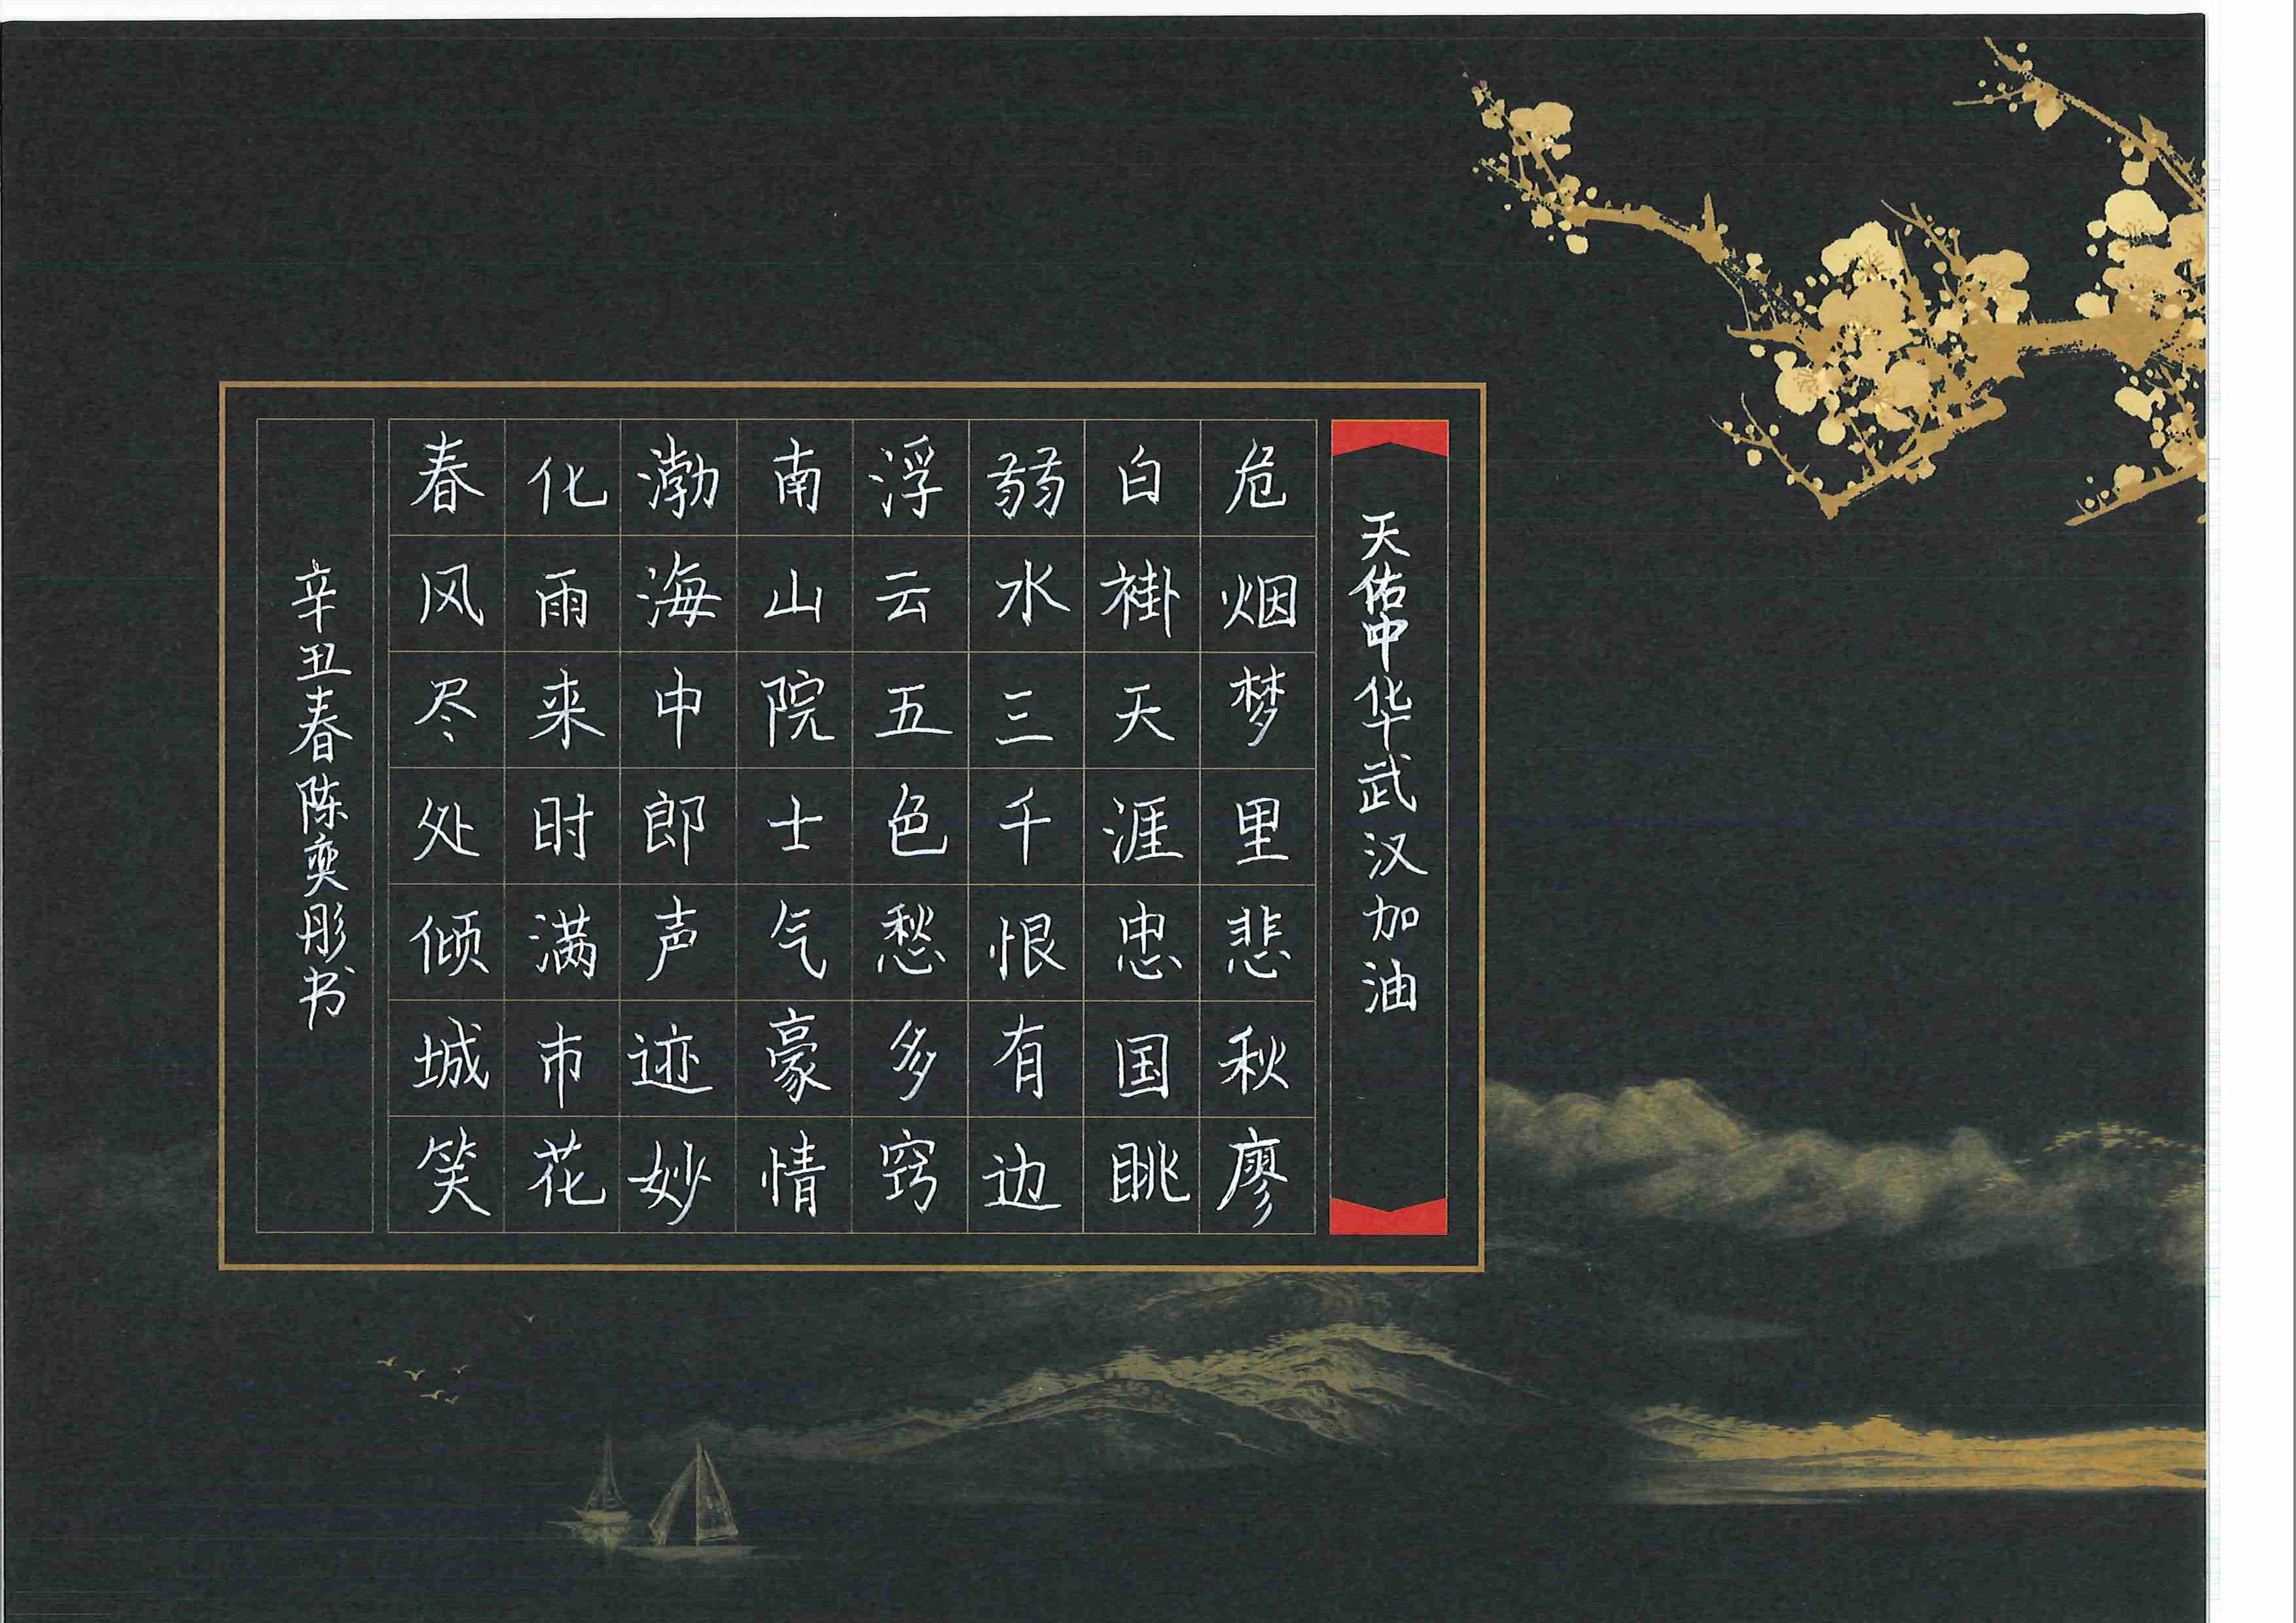 天佑中华武汉加油
危烟梦里悲秋廖
白褂天涯忠国眺
弱水三千恨有边
浮云五色愁多窍
南山院士气豪情
渤海中郎声迹妙
化雨来时满市花
春风尽处倾城笑
辛丑春陈奕彤书